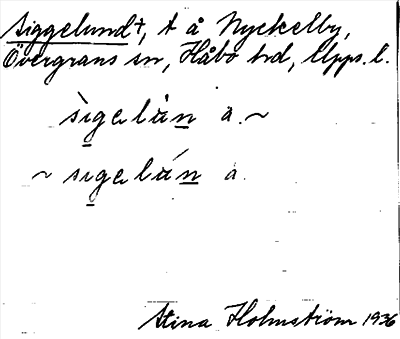 Siggelund†, t å Nyckelby,
Övergrans sn, Håbo hd, Upps. l.
sìgelùn a. ~
~ sıgelún a.
Stina Holmström 1936